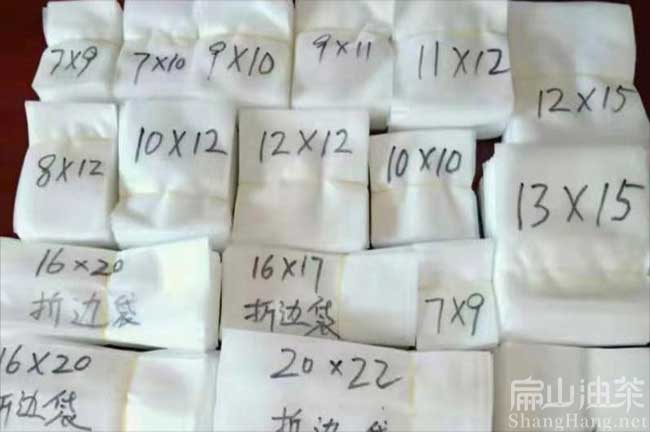 7×9
7×10
9×10
9×11
11×12
12×15
8×12
10×12
12×12
10×10
13×15
16×20
折边袋
16×17
折边袋
7×9
16×20
折边袋
20×22
折边袋
扁山油茶
ShangHang.net